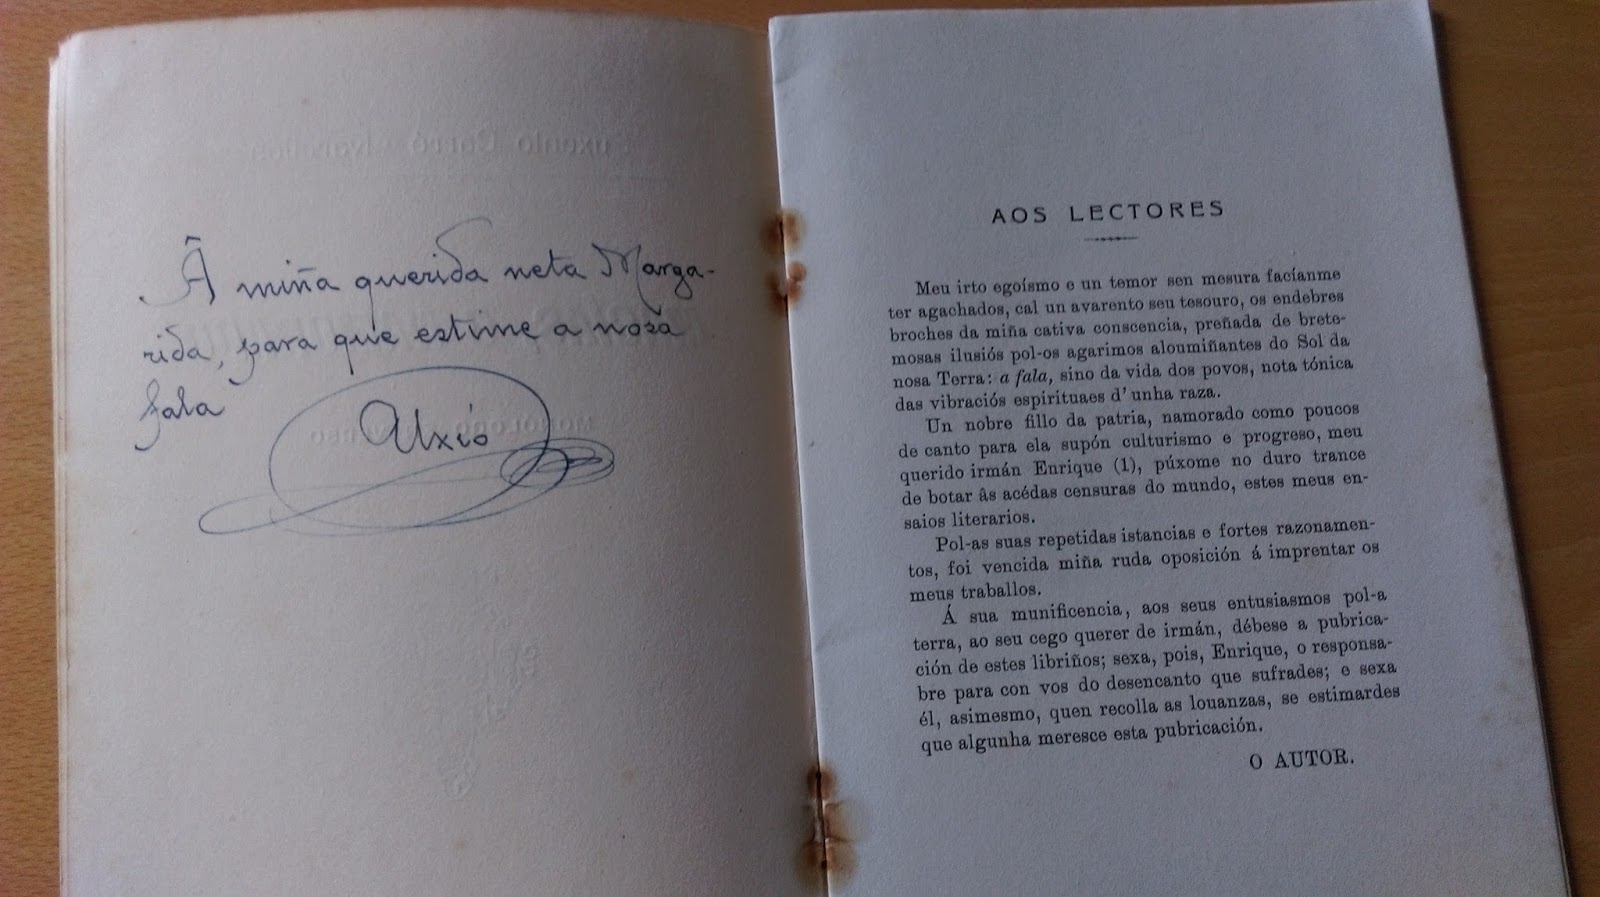 Â miña querida neta Marga-
rida, para que estime a nosa
fala
AOS LECTORES
Meu irto egoísmo e un temor sen mesura facíanme
ter agachados, cal un avarento seu tesouro, os endebres
broches da miña cativa conscencia, preñada de brete-
mosas ilusiós pol-os agarimos aloumiñantes do Sol da
nosa Terra: a fala, sino da vida dos povos, nota tónica
das vibraciós espirituaes d' unha raza.
Un nobre fillo da patria, namorado como poucos
de canto para ela supón culturismo e progreso, meu
querido irmán Enrique (1), púxome no duro trance
de botar âs acédas censuras do mundo, estes meus en-
saios literarios.
Pol-as suas repetidas istancias e fortes razonamen-
tos, foi vencida miña ruda oposición á imprentar os
meus traballos.
Á sua munificencia, aos seus entusiasmos pol-a
terra, ao seu cego querer de irmán, débese a pubrica-
ción de estes libriños; sexa, pois, Enrique, o responsa-
bre para con vos do desencanto que sufrades; e sexa
él, asimesmo, quen recolla as louanzas, se estimardes
que algunha meresce esta pubricación.
O AUTOR.